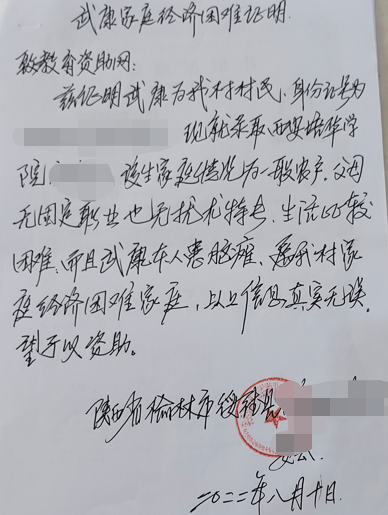 武康家庭经济困难证明.
致教育资助网:
兹证明武康为我村村民,身份证号为
现就录取西安培华学
院, 该生家庭情况为一般农户.父母
无固定职业也无技术特长,生活比较
困难,而且武康本人患脑瘫,属我村家
庭经济困难家庭,以上信息真实无误.
望予以资助。
陕西省榆林市绥德县
二〇二二年八月十日.